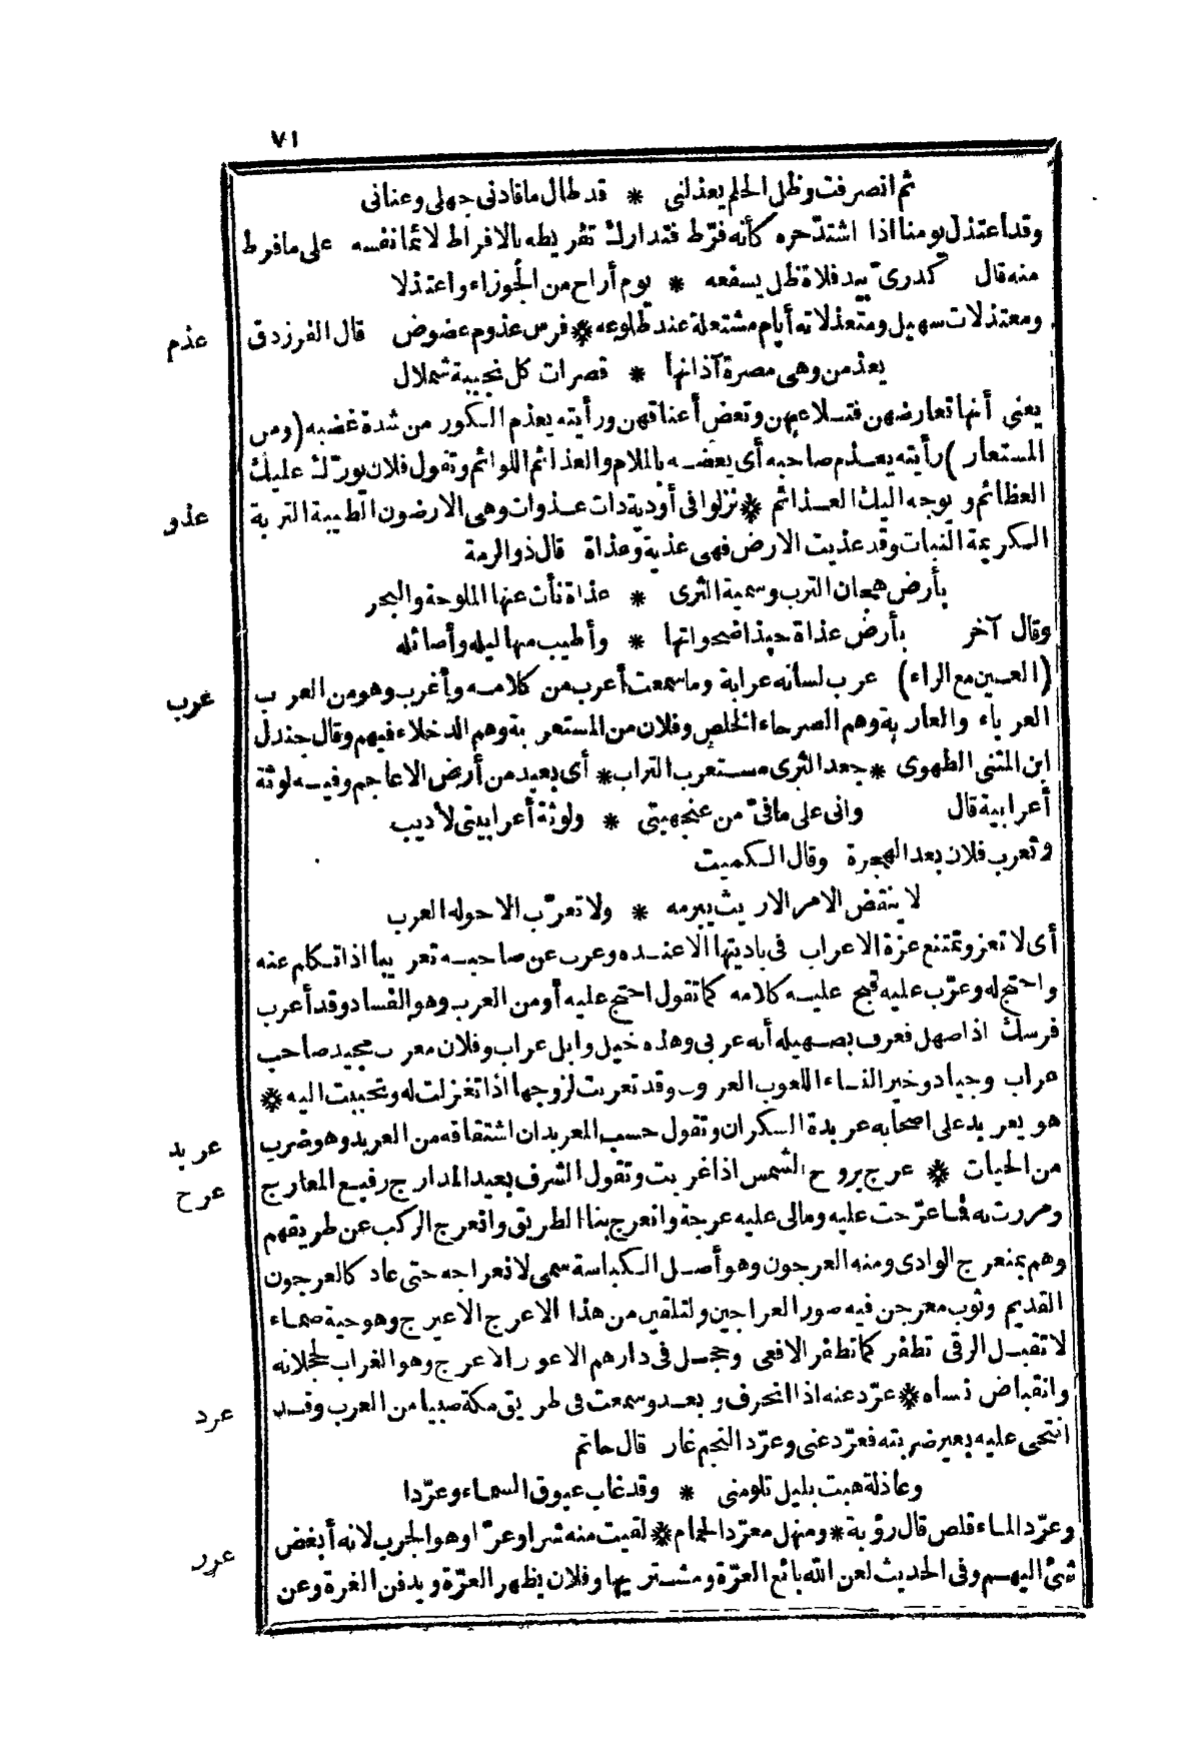 ٧١
ثم انصرفت وظل الحلم يعذلنى * قد طال ما قادنى جهلى وعنانى
وقد اعتذل يومنا اذا اشتدّ حره كأنه فرّط فتدارك تفريطه بالافراط لائمًا نفسه على ما فرط
منه قال كدرىّ بيد فلاة ظل يسفعه * يوم أراح من الجوزاء واعتذلا
ومعتذلات سهيل ومتعذلاته أيام مشتعلة عند طلوعه * فرس عذوم عضوض قال الفرزدق
عذم
يعذمن وهى مصرة آذانها * قصرات كل نجيبة شملال
يعنى أنها تعارضهن فتسلاعبهن وتعض أعناقهن ورأيته يعذم السكور من شدة غضبه (ومن
المستعار) رأيته يعذم صاحبه أى يعضه بالملام والعذائم اللوائم وتقول فلان يورّك عليك
العظائم ويوجه اليك العذائم * نزلوا فى أودية ذات عذوات وهى الارضون الطيبة التربة
عذو
الكريمة النبات وقد عذيت الارض فهى عذية وعذاة قال ذو الرمة
بأرض هجان الترب وسمية الثرى * عذاة نأت عنها الملوحة والبحر
وقال آخر بأرض عذاة حبذا ضحواتها * وأطيب منها ليله وأصائله
(العين مع الراء) عرب لسانه عرابة وما سمعت أعرب من كلامه وأغرب وهو من العرب
عرب
العرباء والعاربة وهم الصرحاء الخلص وفلان من المستعربة وهم الدخلاء فيهم وقال جندل
ابن المثنى الطهوى * جعد الثرى مستعرب التراب * أى بعيد من أرض الاعاجم وفيه لوثة
أعرابية قال وانى على ما فىّ من عنجهيتى * ولوثة أعرابيتى لأديب
وتعرب فلان بعد الهجرة وقال الكميت
لا ينقض الامر الا ريث يبرمه * ولا تعرّب الا حوله العرب
أى لا تعز وتمتنع عزة الاعراب فى باديتها الا عنده وعرب عن صاحبه تعريبا اذا تكلم عنه
واحتج له وعرّب عليه قبح عليه كلامه كما تقول احتج عليه أو من العرب وهو الفساد وقد أعرب
فرسك اذا صهل فعرف بصهيله أنه عربى وهذه خيل وابل عراب وفلان معرب مجيد صاحب
عراب وجياد وخير النساء اللعوب العروب وقد تعربت لزوجها اذا تغزلت له وتحببت اليه *
هو يعربد على أصحابه عربدة السكران وتقول حسب المعربد ان اشتقاقه من العربد وهو ضرب
عربد
من الحيات * عرج بروح الشمس اذا غربت وتقول الشرف بعيد المدارج رفيع المعارج
عرج
ومررت به فما عرّجت عليه ومالى عليه عرجة وانعرج بنا الطريق وانعرج الركب عن طريقهم
وهم بمنعرج الوادى ومنه العرجون وهو أصل الكباسة سمى لانعراجه حتى عاد كالعرجون
القديم وثوب معرجن فيه صور العراجين ولتلقين من هذا الاعرج الاعيرج وهو حية صماء
لا تقبل الرقى تطفر كما تطفر الافعى وحجل فى دارهم الاعور الاعرج وهو الغراب لحجلانه
وانقباض نساه * عرّد عنه اذا انحرف وبعد وسمعت فى طريق مكة صبيا من العرب وقد
عرد
انتحى عليه بعير ضربته فعرّد عنى وعرّد النجم غار قال حاتم
وعاذلة هبت بليل تلومنى * وقد غاب عيوق السماء وعرّدا
وعرّد الماء قلص قال رؤبة * ومنهل معرّد الجمام * لقيت منه شرا وعرّا وهو الجرب لانه أبغض
عرر
شئ اليهم وفى الحديث لعن الله بائع العرّة ومشتريها وفلان يظهر العرّة ويدفن الغرة وعن